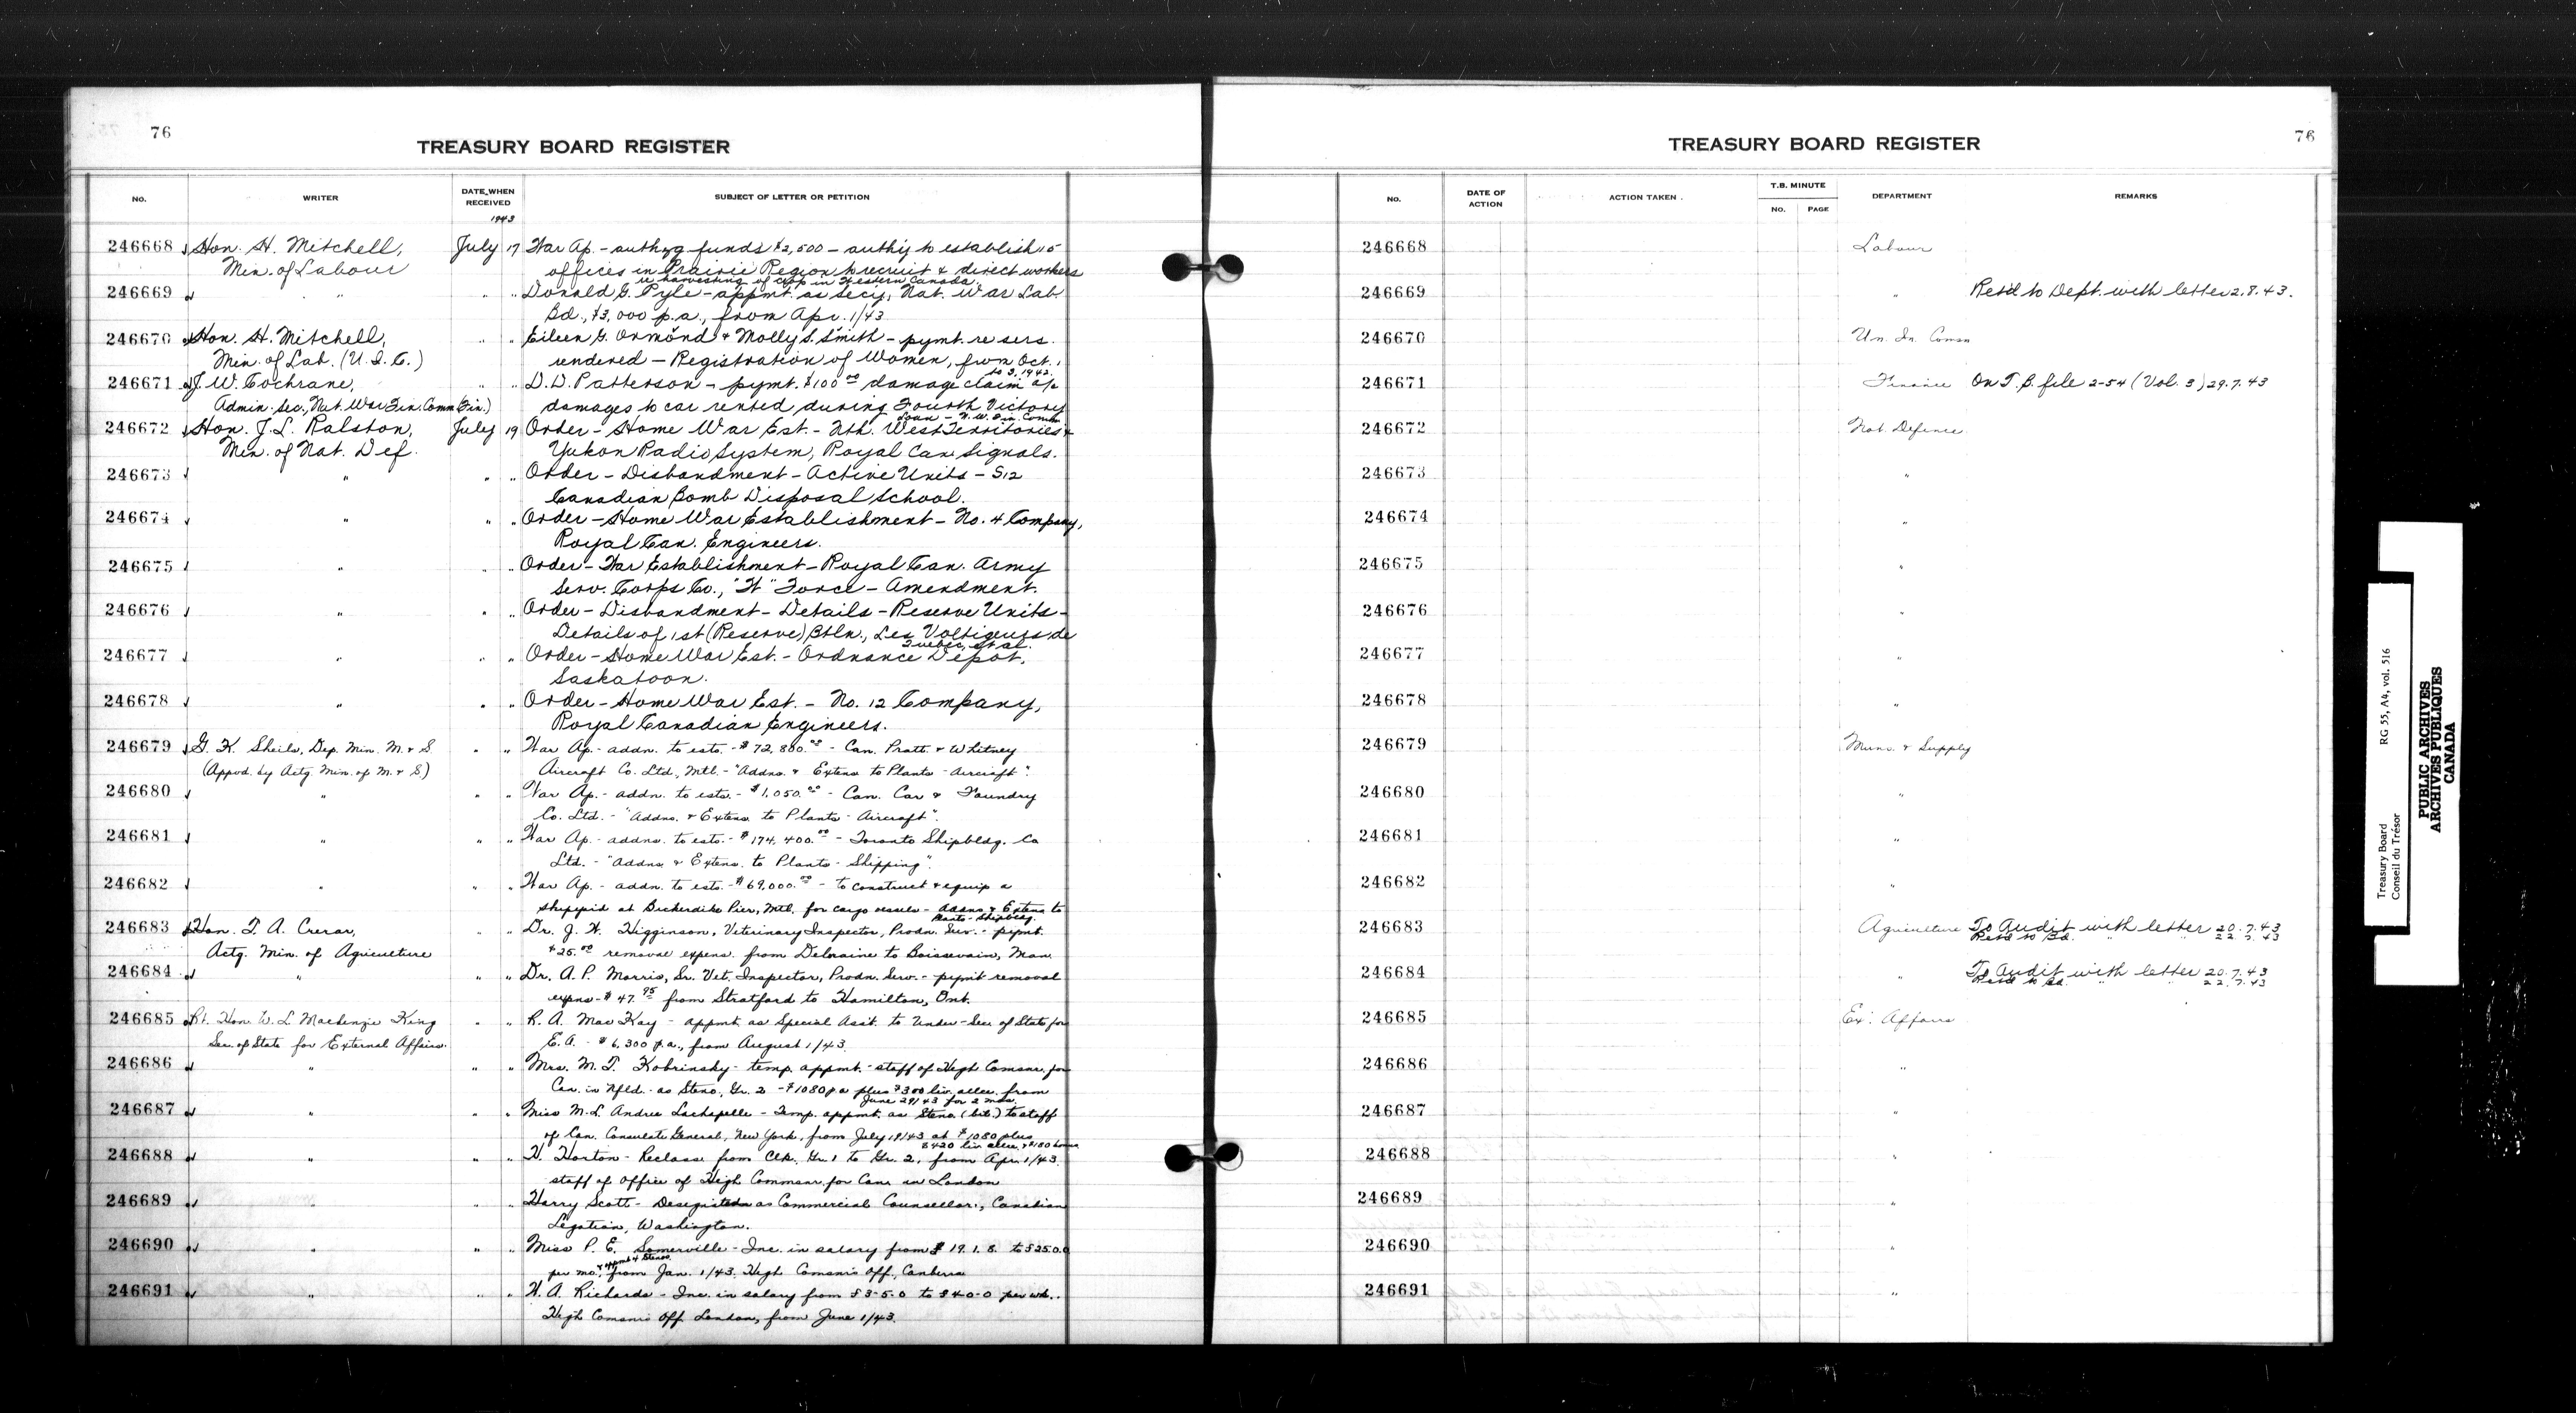 76
TREASURY BOARD REGISTER
NO. WRITER DATE WHEN RECEIVED SUBJECT OF LETTER OR PETITION
1943
246668 Hon. H. Mitchell, July 17 War Ap. - authzg funds $2,500 - authy to establish 15
Min. of Labour offices in Prairie Region to recruit & direct workers
re harvesting of crop in Western Canada.
246669 " " " Donald G. Pyle - appmt. as Secy, Nat. War Lab.
Bd., $3,000 p.a., from Apr. 1/43
246670 Hon. H. Mitchell, " " Eileen G. Ormond & Molly S. Smith - pymt. re sers.
Min. of Lab. (U.I.C.) rendered - Registration of Women, from Oct. 1
to 3, 1942.
246671 J. W. Cochrane, " " D. D. Patterson - pymt. $100.00 damage claim a/c
Admin. Sec., Nat. War Fin. Comm (Fin.) damages to car rented during Fourth Victory
Loan - N.W. Fin. Comm.
246672 Hon. J. L. Ralston, July 19 Order - Home War Est. - Nth. West Territories &
Min. of Nat. Def. Yukon Radio System, Royal Can Signals.
246673 " " " Order - Disbandment - Active Units - S12
Canadian Bomb Disposal School.
246674 " " " Order - Home War Establishment - No. 4 Company,
Royal Can. Engineers.
246675 " " " Order - War Establishment - Royal Can. Army
Serv. Corps Co., "W" Force - Amendment.
246676 " " " Order - Disbandment - Details - Reserve Units -
Details of 1st (Reserve) Btln., Les Voltigeurs de
Quebec, et al.
246677 " " " Order - Home War Est. - Ordnance Depot,
Saskatoon.
246678 " " " Order - Home War Est. - No. 12 Company,
Royal Canadian Engineers.
246679 G. K. Sheils, Dep. Min. M. & S. " " War Ap. - addn. to ests. - $72,800.00 - Can. Pratt & Whitney
(Appvd. by Actg. Min. of M. & S.) Aircraft Co. Ltd., Mtl. - "Addns. & Extens to Plants - Aircraft".
246680 " " " War Ap. - addn. to ests. - $1,050.00 - Can. Car & Foundry
Co. Ltd. - "Addns. & Extens to Plants - Aircraft".
246681 " " " War Ap. - addns. to ests. - $174,400.00 - Toronto Shipbldg. Co
Ltd. - "Addns & Extens. to Plants - Shipping".
246682 " " " War Ap. - addn. to ests. - $69,000.00 - to construct & equip a
shipyard at Bickerdike Pier, Mtl. for cargo vessels - Addns & Extens to
Plants - Shipbldg.
246683 Hon. T. A. Crerar, " " Dr. J. W. Higginson, Veterinary Inspector, Prodn. Serv. - pymt.
Actg. Min. of Agriculture $25.00 removal expens. from Deloraine to Boissevain, Man.
246684 " " " Dr. A. P. Morris, Sr. Vet. Inspector, Prodn. Serv. - pymt removal
expns - $47.95 from Stratford to Hamilton, Ont.
246685 Rt. Hon. W. L. Mackenzie King " " R. A. MacKay - appmt. as Special Asst. to Under-Sec. of State for
Sec. of State for External Affairs. E. A. - $6,300 p.a., from August 1/43.
246686 " " " Mrs. M. T. Kobrinsky - temp. appmt. - staff of High Commr. for
Can. in Nfld. - as Steno, Gr. 2 - $1080 p.a. plus $300 liv. allce. from
June 29/43 for 2 mos.
246687 " " " Miss M. L. Andree Lachapelle - Temp. appmt. as Steno (bil.) to staff
of Can. Consulate General, New York, from July 19/43 at $1080 plus
$420 liv. allce. & $180 bonus
246688 " " " H. Horton - Reclassn from Clk. Gr. 1 to Gr. 2, from Apr. 1/43.
staff of Office of High Commsnr. for Can. in London
246689 " " " Harry Scott - Designation as Commercial Counsellor, Canadian
Legation, Washington.
246690 " " " Miss P. E. Somerville - Inc. in salary from £19.1.8. to £25.0.0
per mo., & appmt. Steno. from Jan. 1/43. High Commr's Off., Canberra
246691 " " " W. A. Richards - Inc. in salary from £3-5-0 to £4-0-0 per wk.
High Commr's Off. London, from June 1/43.
TREASURY BOARD REGISTER
76
NO. DATE OF ACTION ACTION TAKEN . T.B. MINUTE NO. PAGE DEPARTMENT REMARKS
246668 Labour
246669 " Retd to Dept. with letter 2.8.43.
246670 Un. In. Comsn
246671 Finance On T.B. file 2-54 (Vol. 3) 29.7.43
246672 Nat. Defence
246673 "
246674 "
246675 "
246676 "
246677 "
246678 "
246679 Muns. & Supply
246680 "
246681 "
246682 "
246683 Agriculture To Audit with letter 20.7.43
Retd to Bd. " " 22.7.43
246684 " To Audit with letter 20.7.43
Retd to Bd. " " 22.7.43
246685 Ex. Affairs
246686 "
246687 "
246688 "
246689 "
246690 "
246691 "
Treasury Board RG 55, A4, vol. 516
Conseil du Trésor
PUBLIC ARCHIVES
ARCHIVES PUBLIQUES
CANADA